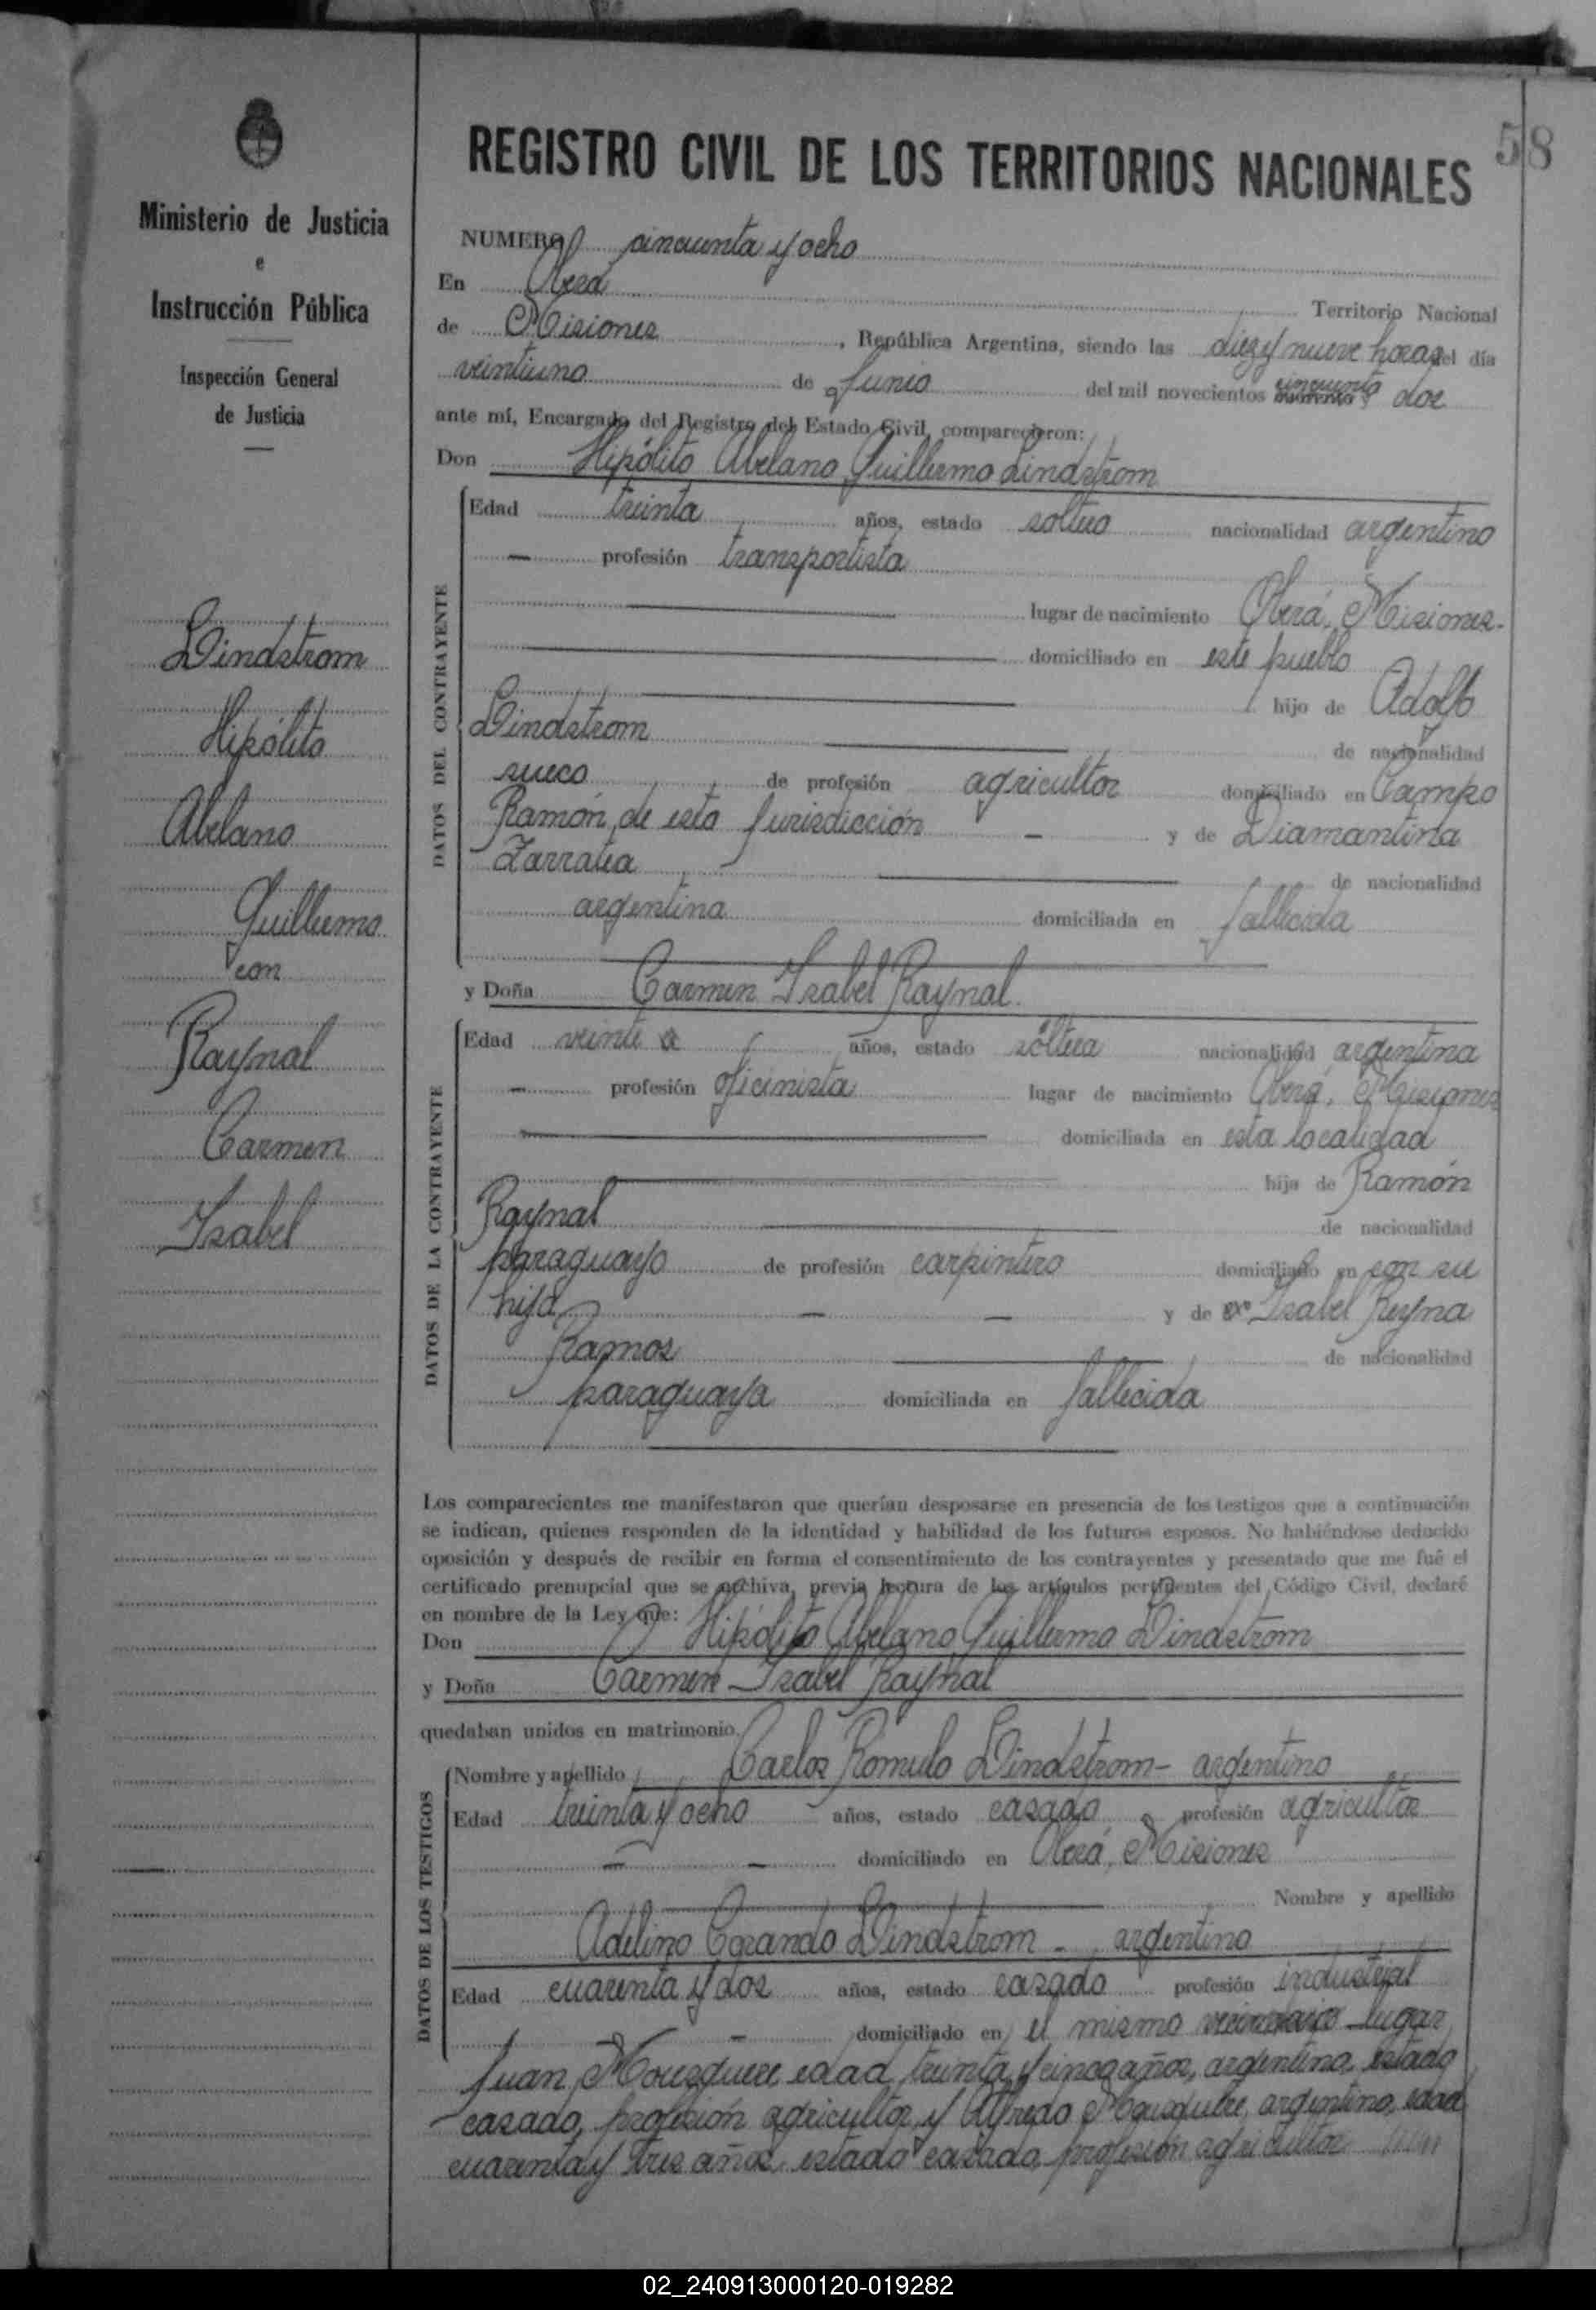 58
Ministerio de Justicia
e
Instrucción Pública
Inspección General
de Justicia
Lindstrom
Hipólito
Abelano
Guillermo
con
Raynal
Carmen
Isabel
REGISTRO CIVIL DE LOS TERRITORIOS NACIONALES
NUMERO cincuenta y ocho
En Oberá Territorio Nacional
de Misiones, República Argentina, siendo las diez y nueve horas del día
veintiuno de Junio del mil novecientos cincuenta y dos
ante mí, Encargado del Registro del Estado Civil, comparecieron:
Don Hipólito Abelano Guillermo Lindstrom
DATOS DEL CONTRAYENTE
Edad treinta años, estado soltero nacionalidad argentino
— profesión transportista
lugar de nacimiento Oberá, Misiones-
domiciliado en este pueblo
hijo de Adolfo
Lindstrom de nacionalidad
sueco de profesión agricultor domiciliado en Campo
Ramón, de esta Jurisdicción — y de Diamantina
Zarratea de nacionalidad
argentina domiciliada en fallecida
y Doña Carmen Isabel Raynal.
DATOS DE LA CONTRAYENTE
Edad veinte años, estado soltera nacionalidad argentina
— profesión oficinista lugar de nacimiento Oberá, Misiones
domiciliada en esta localidad
hija de Ramón
Raynal de nacionalidad
paraguayo de profesión carpintero domiciliado en con su
hija — — y de Isabel Reyna
Ramos de nacionalidad
paraguaya domiciliada en fallecida
Los comparecientes me manifestaron que querían desposarse en presencia de los testigos que a continuación
se indican, quienes responden de la identidad y habilidad de los futuros esposos. No habiéndose deducido
oposición y después de recibir en forma el consentimiento de los contrayentes y presentado que me fué el
certificado prenupcial que se archiva, previa lectura de los artículos pertinentes del Código Civil, declaré
en nombre de la Ley que:
Don Hipólito Abelano Guillermo Lindstrom
y Doña Carmen Isabel Raynal
quedaban unidos en matrimonio.
DATOS DE LOS TESTIGOS
Nombre y apellido Carlos Rómulo Lindstrom- argentino
Edad treinta y ocho años, estado casado profesión agricultor
— — domiciliado en Oberá, Misiones
Nombre y apellido
Adelino Lindstrom - argentino
Edad cuarenta y dos años, estado casado profesión industrial
— domiciliado en el mismo lugar
Juan edad treinta y cinco años, argentino, estado
casado, profesión agricultor y Alfredo argentino, edad
cuarenta y tres años, estado casado, profesión agricultor
02_240913000120-019282